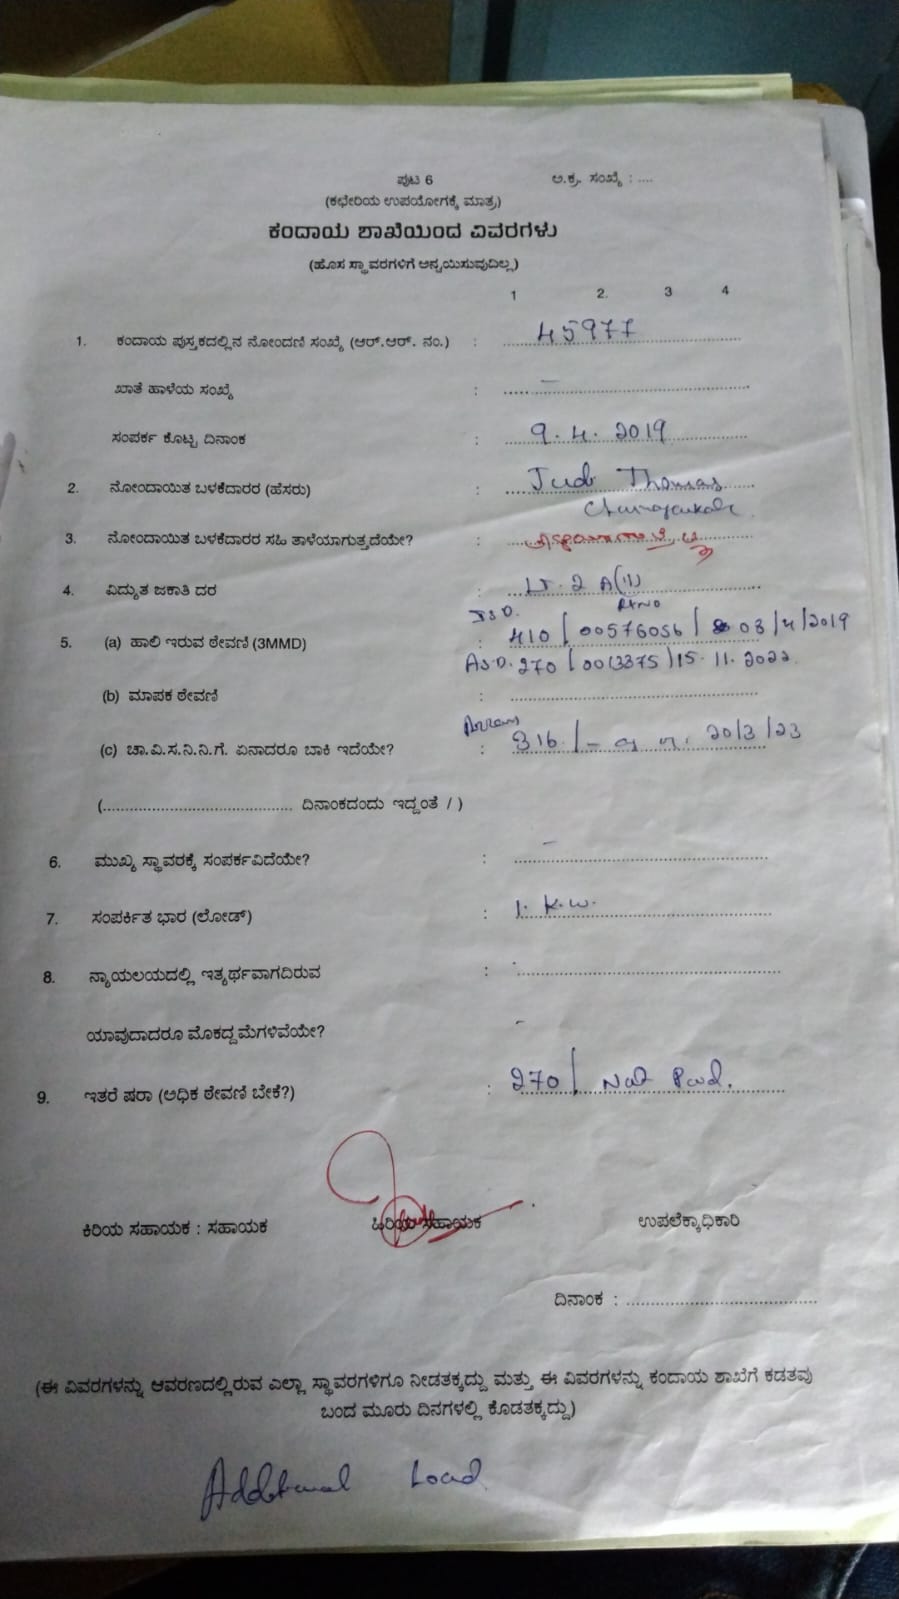 ಪುಟ 6 ಅ.ಕ್ರ. ಸಂಖ್ಯೆ : ....
(ಕಛೇರಿಯ ಉಪಯೋಗಕ್ಕೆ ಮಾತ್ರ)
ಕಂದಾಯ ಶಾಖೆಯಿಂದ ವಿವರಗಳು
(ಹೊಸ ಸ್ಥಾವರಗಳಿಗೆ ಅನ್ವಯಿಸುವುದಿಲ್ಲ)
1 2. 3 4
1. ಕಂದಾಯ ಪುಸ್ತಕದಲ್ಲಿನ ನೋಂದಣಿ ಸಂಖ್ಯೆ (ಆರ್.ಆರ್. ನಂ.) : 45977
ಖಾತೆ ಹಾಳೆಯ ಸಂಖ್ಯೆ : -
ಸಂಪರ್ಕ ಕೊಟ್ಟ ದಿನಾಂಕ : 9.4.2019
2. ನೋಂದಾಯಿತ ಬಳಕೆದಾರರ (ಹೆಸರು) : Jude Thomas
3. ನೋಂದಾಯಿತ ಬಳಕೆದಾರರ ಸಹಿ ತಾಳೆಯಾಗುತ್ತದೆಯೇ? :
4. ವಿದ್ಯುತ ಜಕಾತಿ ದರ : LT. 2 A(ii)
ISD. RTNO
5. (a) ಹಾಲಿ ಇರುವ ಠೇವಣಿ (3MMD) : 410 / 00576056 / 03/4/2019
ASD. 270 / 0013375 / 15.11.2022
(b) ಮಾಪಕ ಠೇವಣಿ :
(c) ಚಾ.ವಿ.ಸ.ನಿ.ನಿ.ಗೆ. ಏನಾದರೂ ಬಾಕಿ ಇದೆಯೇ? : 316/- 20/3/23
(.......................................... ದಿನಾಂಕದಂದು ಇದ್ದಂತೆ / )
6. ಮುಖ್ಯ ಸ್ಥಾವರಕ್ಕೆ ಸಂಪರ್ಕವಿದೆಯೇ? : -
7. ಸಂಪರ್ಕಿತ ಭಾರ (ಲೋಡ್) : 1. K.W.
8. ನ್ಯಾಯಲಯದಲ್ಲಿ ಇತ್ಯರ್ಥವಾಗದಿರುವ : -
ಯಾವುದಾದರೂ ಮೊಕದ್ದಮೆಗಳಿವೆಯೇ? -
9. ಇತರೆ ಷರಾ (ಅಧಿಕ ಠೇವಣಿ ಬೇಕೆ?) : 270/ Not Paid.
ಕಿರಿಯ ಸಹಾಯಕ : ಸಹಾಯಕ ಹಿರಿಯ ಸಹಾಯಕ ಉಪಲೆಕ್ಕಾಧಿಕಾರಿ
ದಿನಾಂಕ : ..........................................
(ಈ ವಿವರಗಳನ್ನು ಆವರಣದಲ್ಲಿರುವ ಎಲ್ಲಾ ಸ್ಥಾವರಗಳಿಗೂ ನೀಡತಕ್ಕದ್ದು ಮತ್ತು ಈ ವಿವರಗಳನ್ನು ಕಂದಾಯ ಶಾಖೆಗೆ ಕಡತವು
ಬಂದ ಮೂರು ದಿನಗಳಲ್ಲಿ ಕೊಡತಕ್ಕದ್ದು)
Additional Load